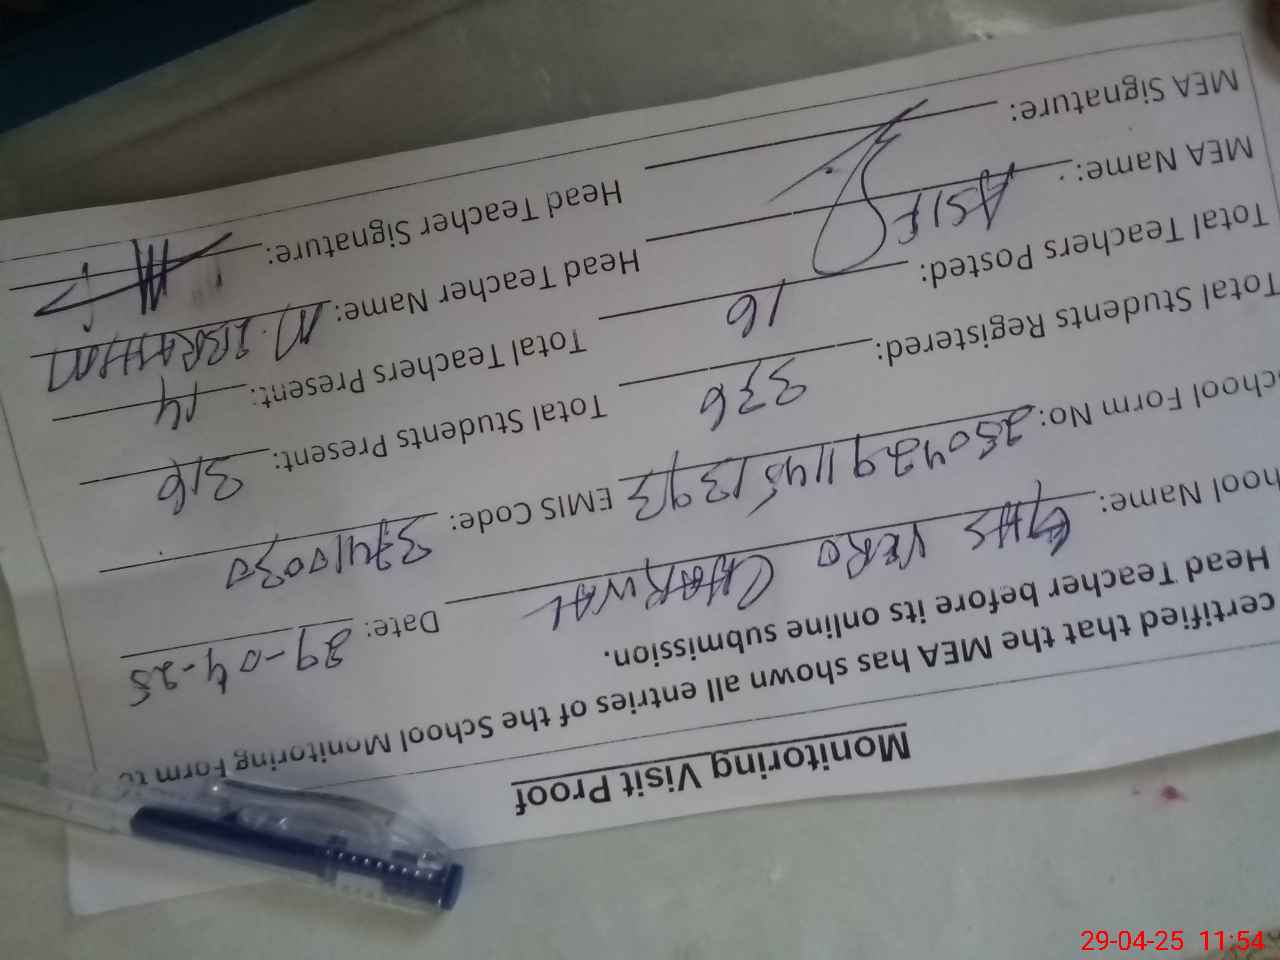 Monitoring Visit Proof
certified that the MEA has shown all entries of the School Monitoring Form to
Head Teacher before its online submission.
hool Name: GHS VERO CHARWAL Date: 29-04-25
chool Form No: EMIS Code: 37410030
Total Students Registered: 336 Total Students Present: 316
Total Teachers Posted: 16 Total Teachers Present: 14
MEA Name: ASIF Head Teacher Name: M. IBRAHIM
MEA Signature: Head Teacher Signature:
29-04-25 11:54